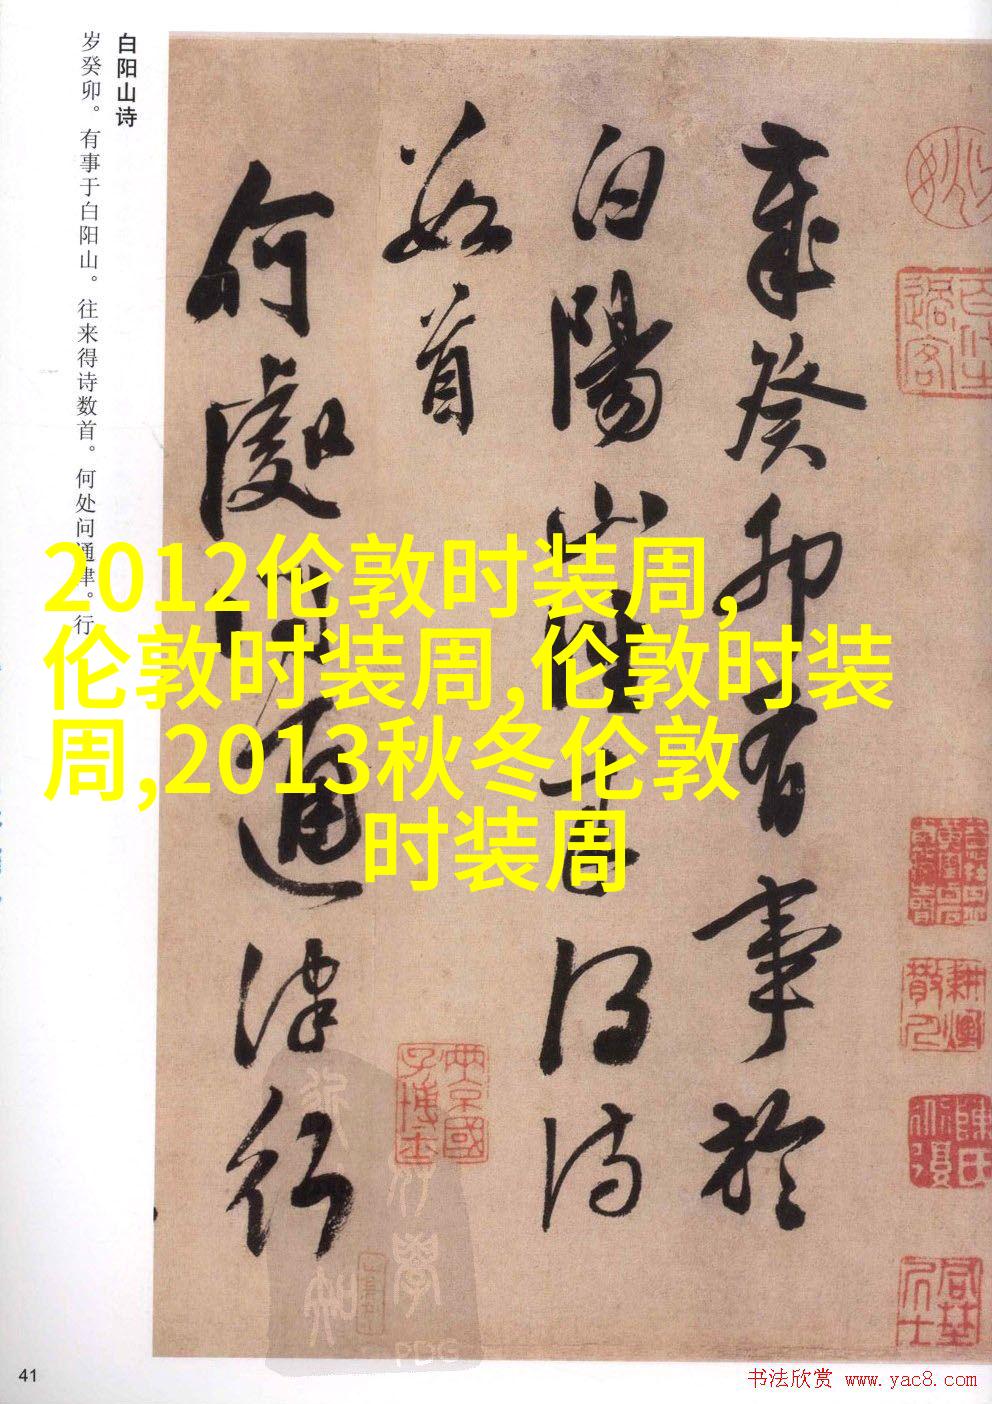 白阳山诗
岁癸卯。有事于白阳山。往来得诗数首。何处问通津。行
歲癸卯有事於
白陽山往來得詩
數首
何處問通津行
2012伦敦时装周,
伦敦时装周,伦敦时装
周,2013秋冬伦敦
时装周
41
书法欣赏 www.yac8.com